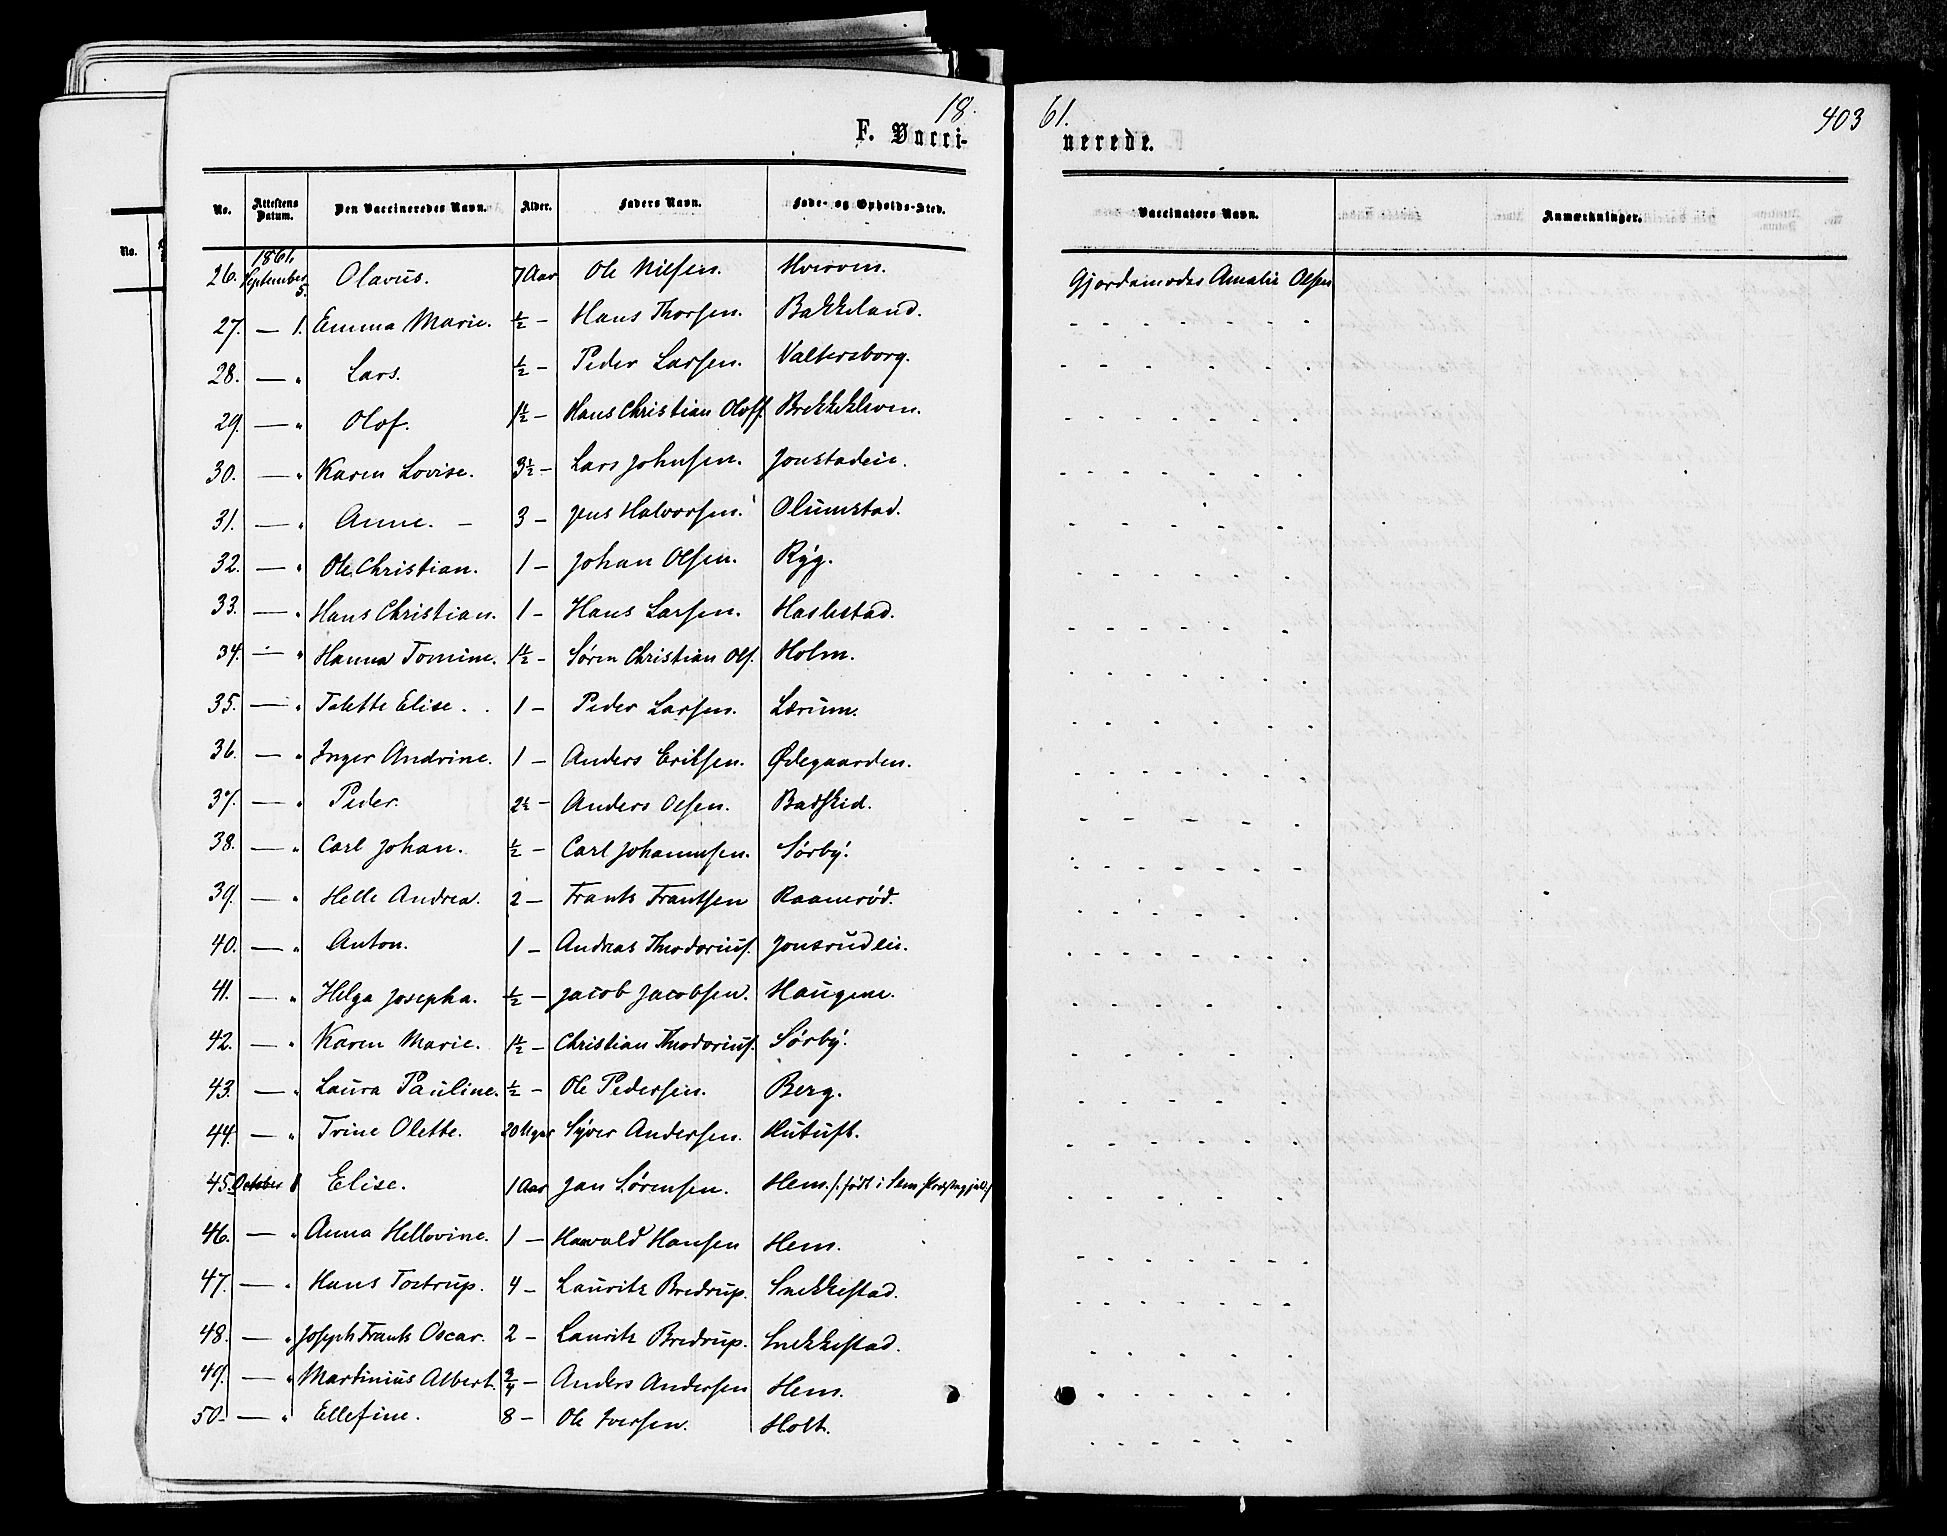 18 61. 403
F. Vaccinerede.
No. Attestens Datum. Den Vaccineredes Navn. Alder. Faders Navn. Føde- og Opholds-Sted. Vaccinators Navn. Anmærkninger.
26. 1861. September 5. Olavus. 7 Aar Ole Nilsen. Hverven. Gjordemoder Amalie Olsen
27. — 1. Emma Marie. ½ — Hans Thorsen. Bakkeland. - - - - - - -
28. — " Lars. ½ — Peder Larsen. Valtersborg. - - - - - -
29. — " Olof. 1½ — Hans Christian Oloff. Brekkekleven. - - - - - -
30. — " Karen Lovise. 3½ — Lars Johnsen. Jonstadeie. - - - - - -
31. — " Anne. — 3 — Jens Halvorsen. Olumstad. - - - - - -
32. — " Ole Christian. 1 — Johan Olsen. Ryg. - - - - - -
33. — " Hans Christian. 1 — Hans Larsen. Haslestad. - - - - - -
34. — " Hanna Tomine. 1½ — Søren Christian Ols. Holm. - - - - - -
35. — " Talette Elise. 1 — Peder Larsen. Lærum. - - - - - -
36. — " Inger Andrine. 1 — Anders Eriksen. Ødegaarden. - - - - - -
37. — " Peder. 2½ — Anders Olsen. Badskid. - - - - - -
38. — " Carl Johan. ½ — Carl Johannsen. Sørby. - - - - - -
39. — " Helle Andrea. 2 — Frants Frantsen Raanerød. - - - - - -
40. — " Anton. 1 — Andreas Thodorius. Jonsrudeie. - - - - - - - -
41. — " Helga Josepha. ½ — Jacob Jacobsen. Haugene. - - - - - -
42. — " Karen Marie. 1½ — Christian Thodorius. Sørby. - - - - - -
43. — " Laura Pauline. ½ — Ole Pedersen. Berg. - - - - - -
44. — " Trine Olette. 20 Uger Syver Andersen. Hutuft. - - - - - -
45. October 1 Elise. 1 Aar Jan Sørensen. Hem. /: født i Sem Præstegjeld :/ - - - - - -
46. — " Anna Hellovine. 1 — Hawald Hansen Hem. - - - - - -
47. — " Hans Tostrup. 4 — Lauritz Bredrup. Snekkestad. - - - - - - -
48. — " Joseph Frants Oscar. 2 — Lauritz Bredrup. Snekkestad. - - - - - -
49. — " Martinius Albert. ¾ — Anders Andersen Hem. - - - - - -
50. — " Ellefine. 8 — Ole Iversen. Holt. - - - - - -
No.